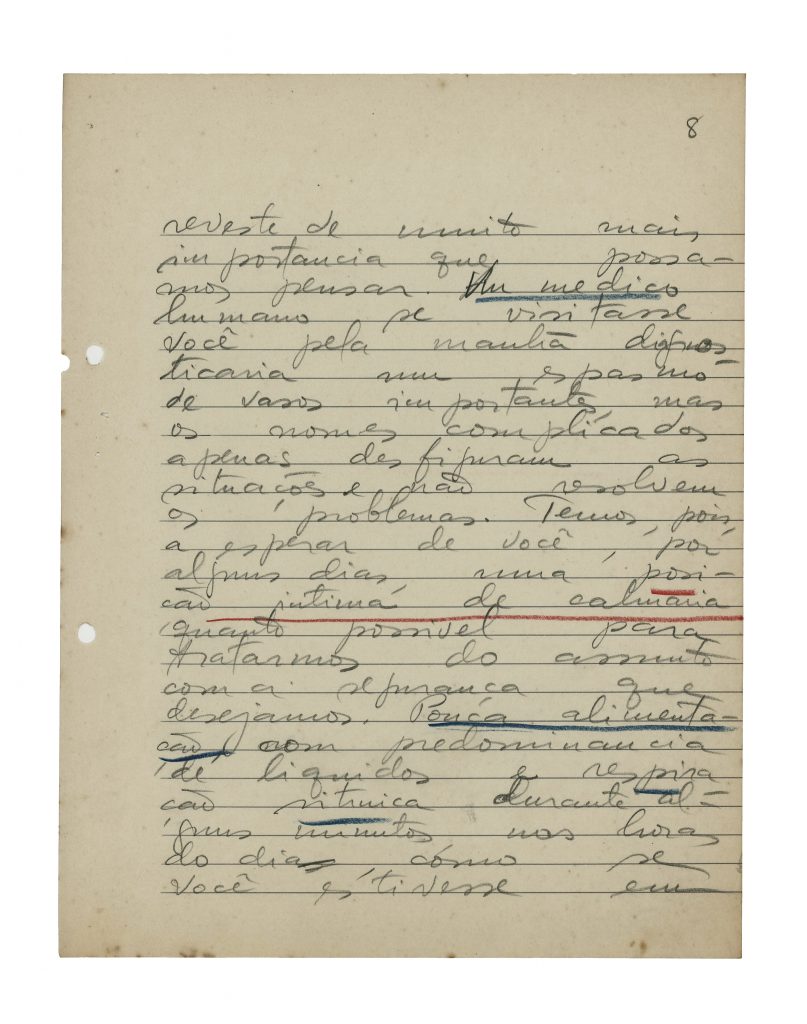 8
reveste de muito mais
importancia que possa-
mos pensar. Um medico
humano se visitasse
você pela manhã dignos
ticaria num espasmo
de vasos importantes, mas
os nomes complicados
apenas desfiguram as
situações e não resolvem
os problemas. Temos, pois,
a esperar de você, por
alguns dias, uma posi-
ção intima de calmaria
quanto possivel para
tratarmos do assunto
com a segurança que
desejamos. Pouca alimenta-
ção com predominancia
de liquidos e respira
ção ritmica durante al-
guns minutos nas horas
do dia, como se
você estivesse em